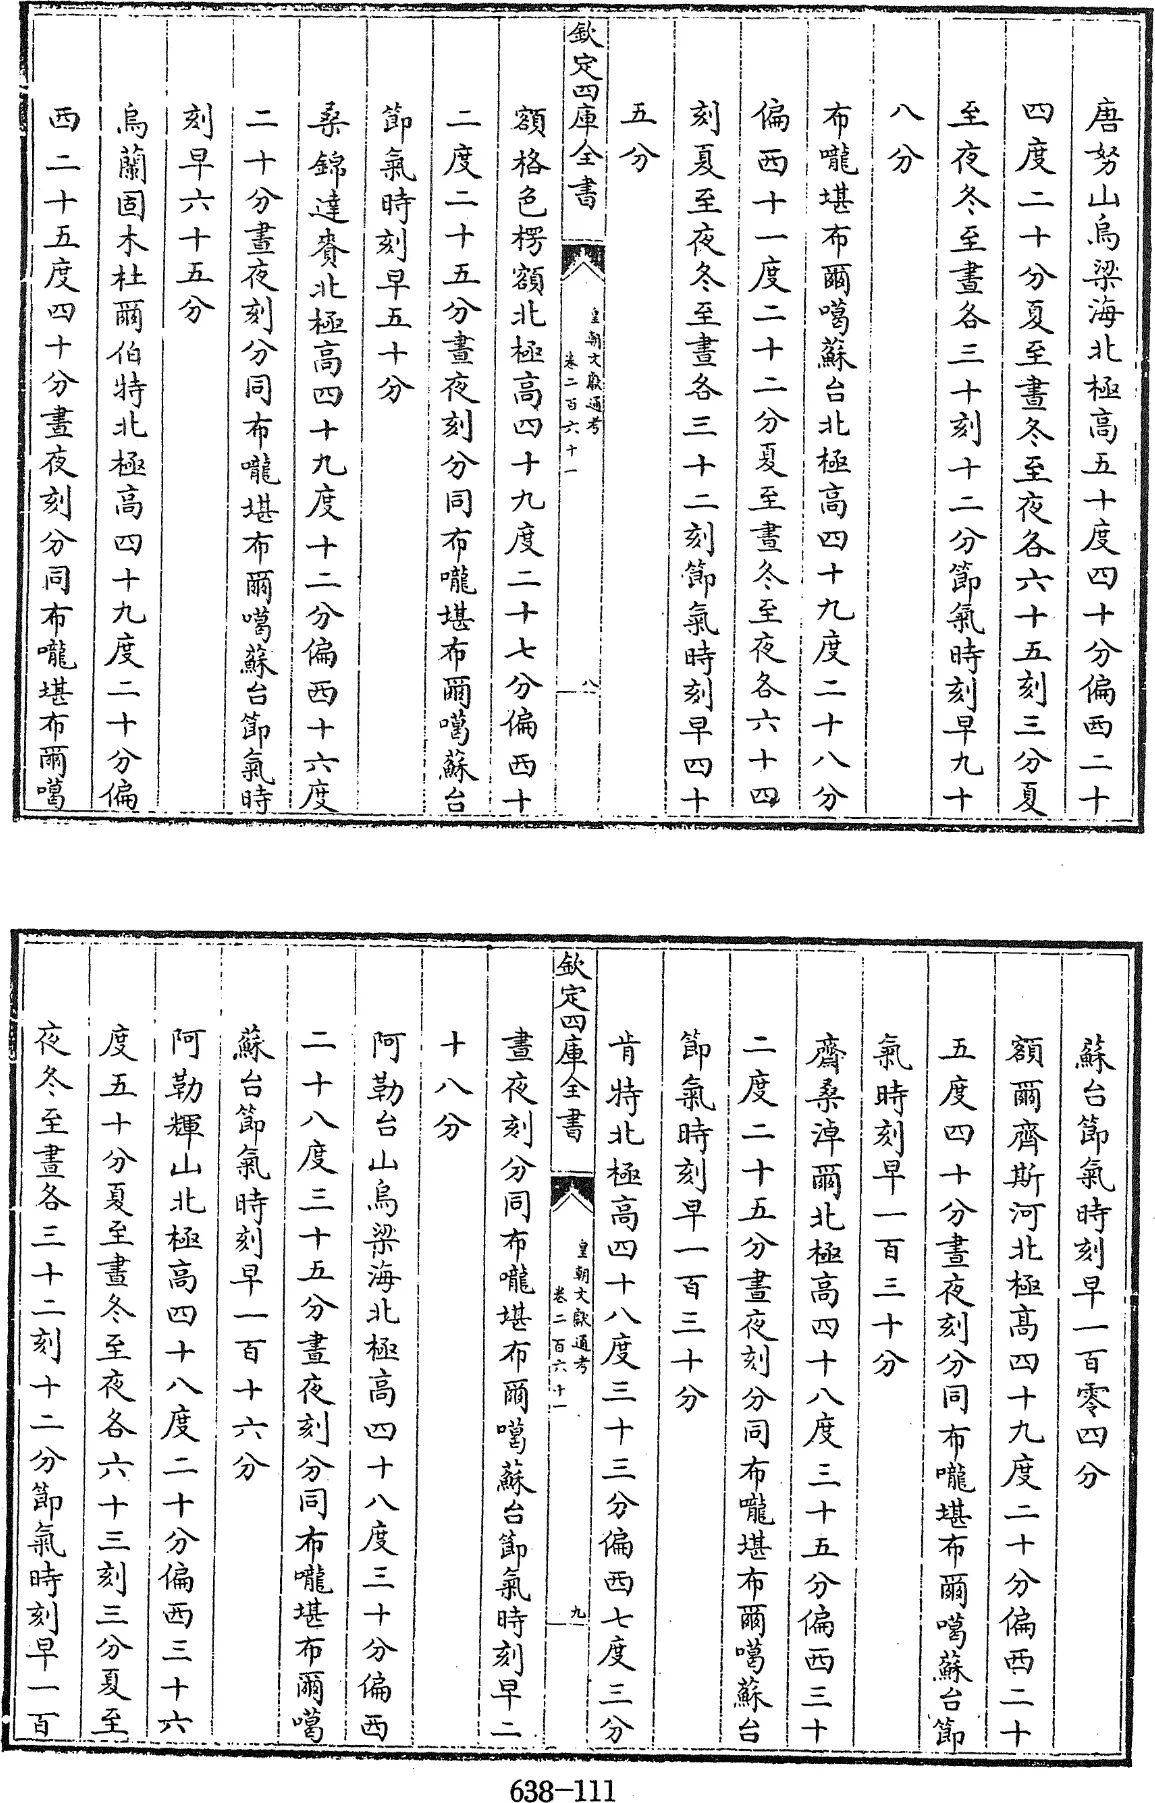 唐努山烏梁海北極高五十度四十分偏西二十
四度二十分夏至晝冬至夜各六十五刻三分夏
至夜冬至晝各三十刻十二分節氣時刻早九十
八分
布嚨堪布爾噶蘇台北極高四十九度二十八分
偏西十一度二十二分夏至晝冬至夜各六十四
刻夏至夜冬至晝各三十二刻節氣時刻早四十
五分
欽定四庫全書
皇朝文獻通考
卷二百六十一
八
額格色楞額北極高四十九度二十七分偏西十
二度二十五分晝夜刻分同布嚨堪布爾噶蘇台
節氣時刻早五十分
桑錦達賚北極高四十九度十二分偏西十六度
二十分晝夜刻分同布嚨堪布爾噶蘇台節氣時
刻早六十五分
烏蘭固木杜爾伯特北極高四十九度二十分偏
西二十五度四十分晝夜刻分同布嚨堪布爾噶
蘇台節氣時刻早一百零四分
額爾齊斯河北極髙四十九度二十分偏西二十
五度四十分晝夜刻分同布嚨堪布爾噶蘇台節
氣時刻早一百三十分
齋桑淖爾北極高四十八度三十五分偏西三十
二度二十五分晝夜刻分同布嚨堪布爾噶蘇台
節氣時刻早一百三十分
肯特北極高四十八度三十三分偏西七度三分
欽定四庫全書
皇朝文獻通考
卷二百六十一
九
晝夜刻分同布嚨堪布爾噶蘇台節氣時刻早二
十八分
阿勒台山烏梁海北極高四十八度三十分偏西
二十八度三十五分晝夜刻分同布嚨堪布爾噶
蘇台節氣時刻早一百十六分
阿勒輝山北極高四十八度二十分偏西三十六
度五十分夏至晝冬至夜各六十三刻三分夏至
夜冬至晝各三十二刻十二分節氣時刻早一百
638-111